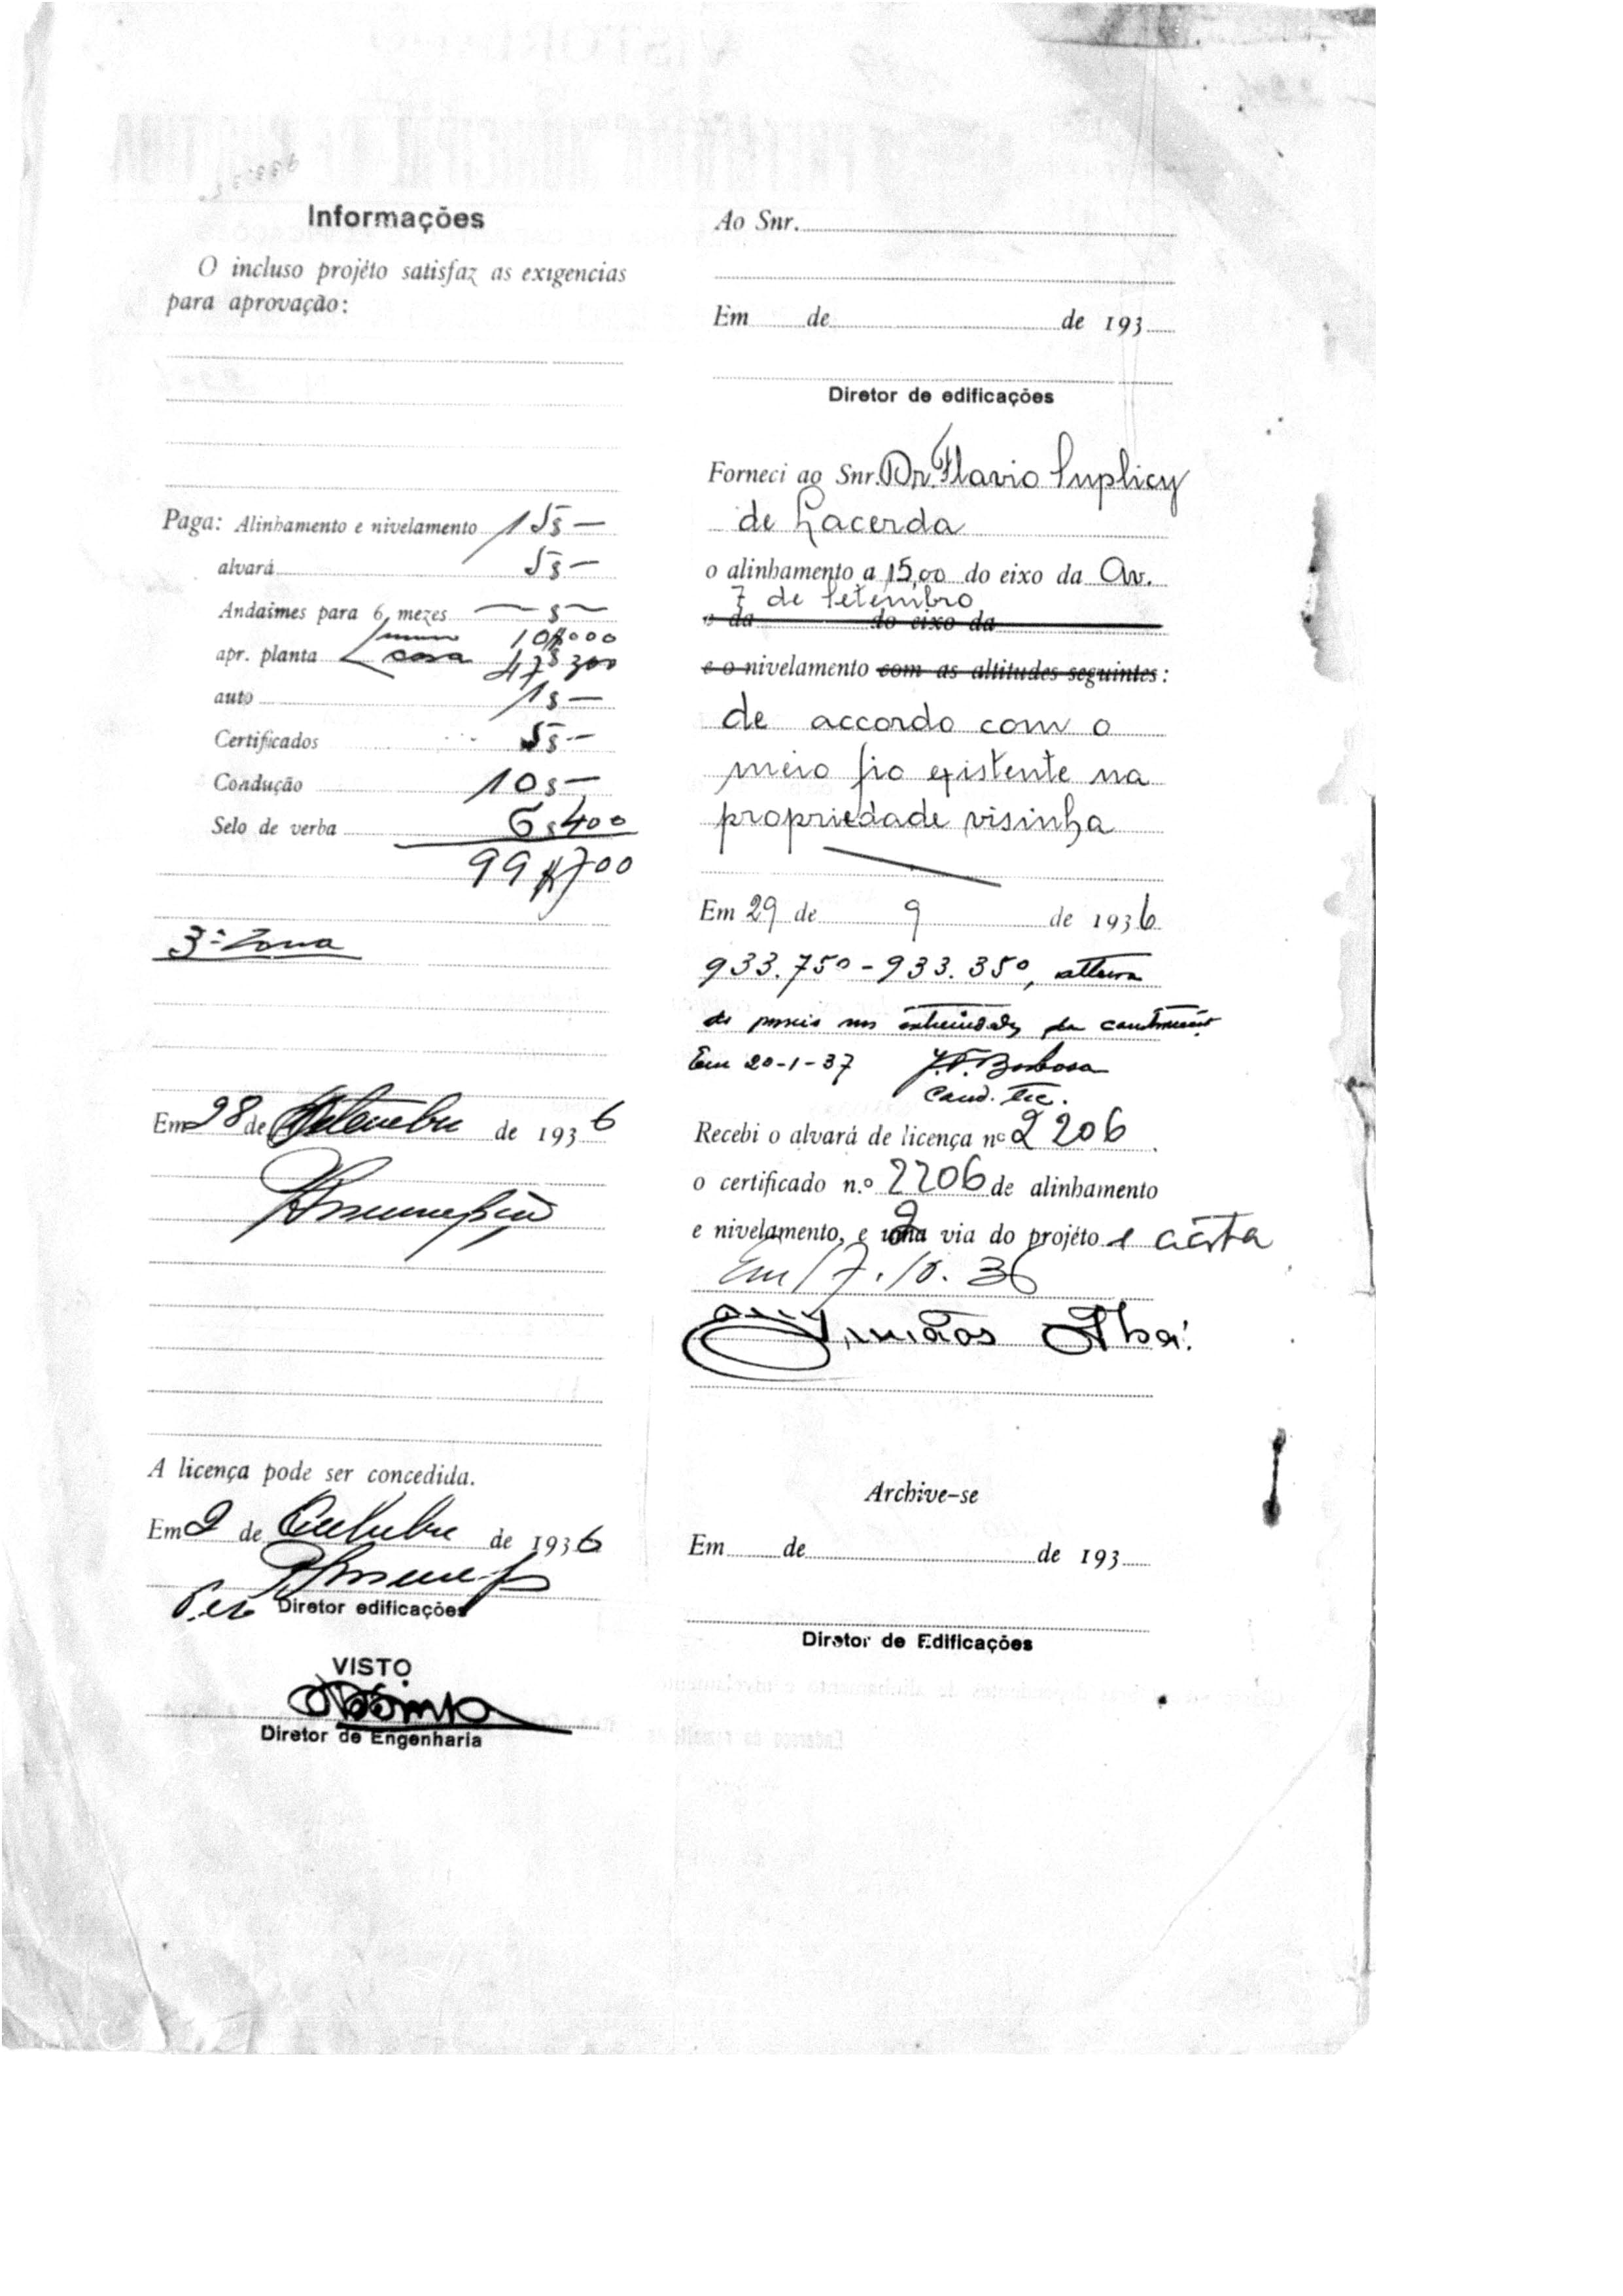 Informações
O incluso projéto satisfaz as exigencias
para aprovação:
Paga: Alinhamento e nivelamento 15$—
alvará 5$—
Andaimes para 6 mezes —$—
muro 10$000
apr. planta casa 47$300
auto 1$—
Certificados 5$—
Condução 10$—
Selo de verba 6$400
99$700
3ª Zona
Em 28 de Setembro de 1936
A licença pode ser concedida.
Em 2 de Outubro de 1936
Diretor edificações
VISTO
Diretor de Engenharia
Ao Snr.
Em de de 193
Diretor de edificações
Forneci ao Snr. Dr. Flavio Suplicy
de Lacerda
o alinhamento a 15,00 do eixo da Av.
7 de Setembro
e da do eixo da
e o nivelamento com as altitudes seguintes:
de accordo com o
meio fio existente na
propriedade visinha
Em 29 de 9 de 1936
933.750 - 933.350, altura
da construcção
Em 20-1-37 J. F. Barbosa
Cond. Tec.
Recebi o alvará de licença nº 2206
o certificado n.º 2206 de alinhamento
e nivelamento, e 2 via do projéto e carta
Em 17.10.36
Archive-se
Em de de 193
Diretor de Edificações